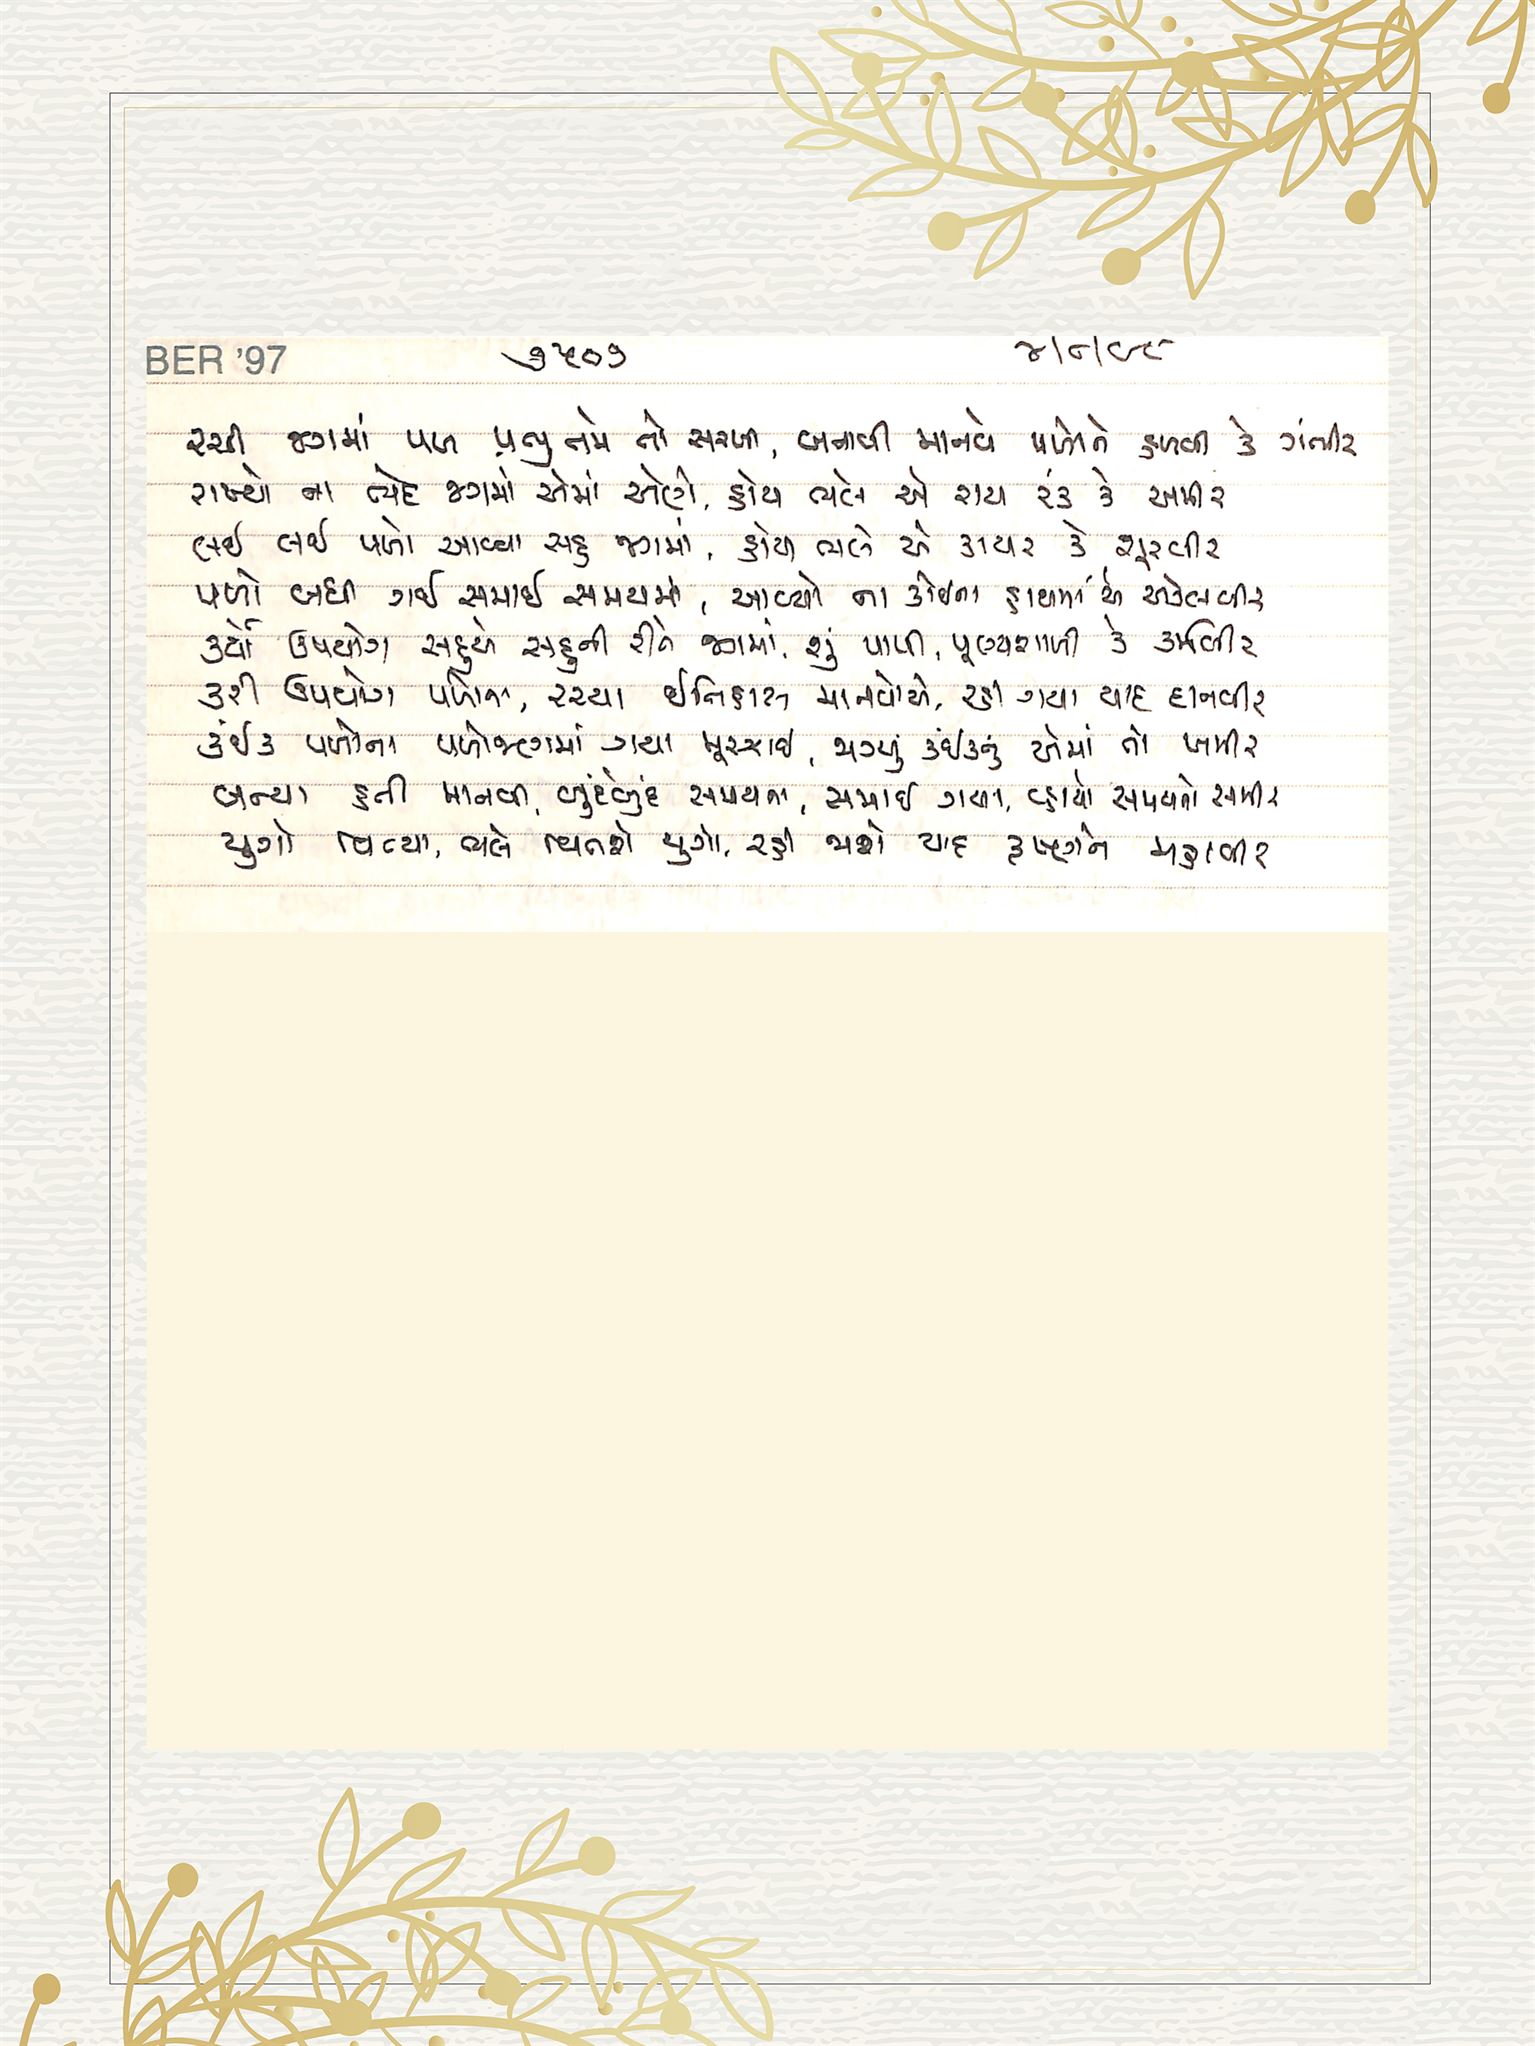 BER '97 ૭૫૦૭ ૪/૮/૯૮
રચી જગમાં પળ પ્રભુ તમે તો સરખી, બનાવી માનવે પળોને હળવી કે ગંભીર
રાખ્યો ના ભેદ જગમાં એમાં એણે, હોય ભલે એ રાય રંક કે અમીર
લઈ લઈ પળો આવ્યા સહુ જગમાં, હોય ભલે એ કાયર કે શૂરવીર
પળો બધી ગઈ સમાઈ સમયમાં, આવ્યો ના કોઈના હાથમાં એ અકેલવીર
કર્યો ઉપયોગ સહુએ સહુની રીતે જગમાં, શું પાપી, પૂણ્યશાળી કે કર્મવીર
કરી ઉપયોગ પળોના, રચ્યા ઈતિહાસ માનવોએ, રહી ગયા યાદ દાનવીર
કંઈક પળોના પળોજણમાં ગયા મૂરઝાઈ, મળ્યું કંઈકનું એમાં તો ખમીર
બન્યા હતી માનવી, બુંદેબુંદ સમયના, સમાઈ ગયા, વ્હાયો સમયનો સમીર
યુગો વિત્યા, ભલે વિતશે યુગો, રહી જાશે યાદ કૃષ્ણને મહાવીર